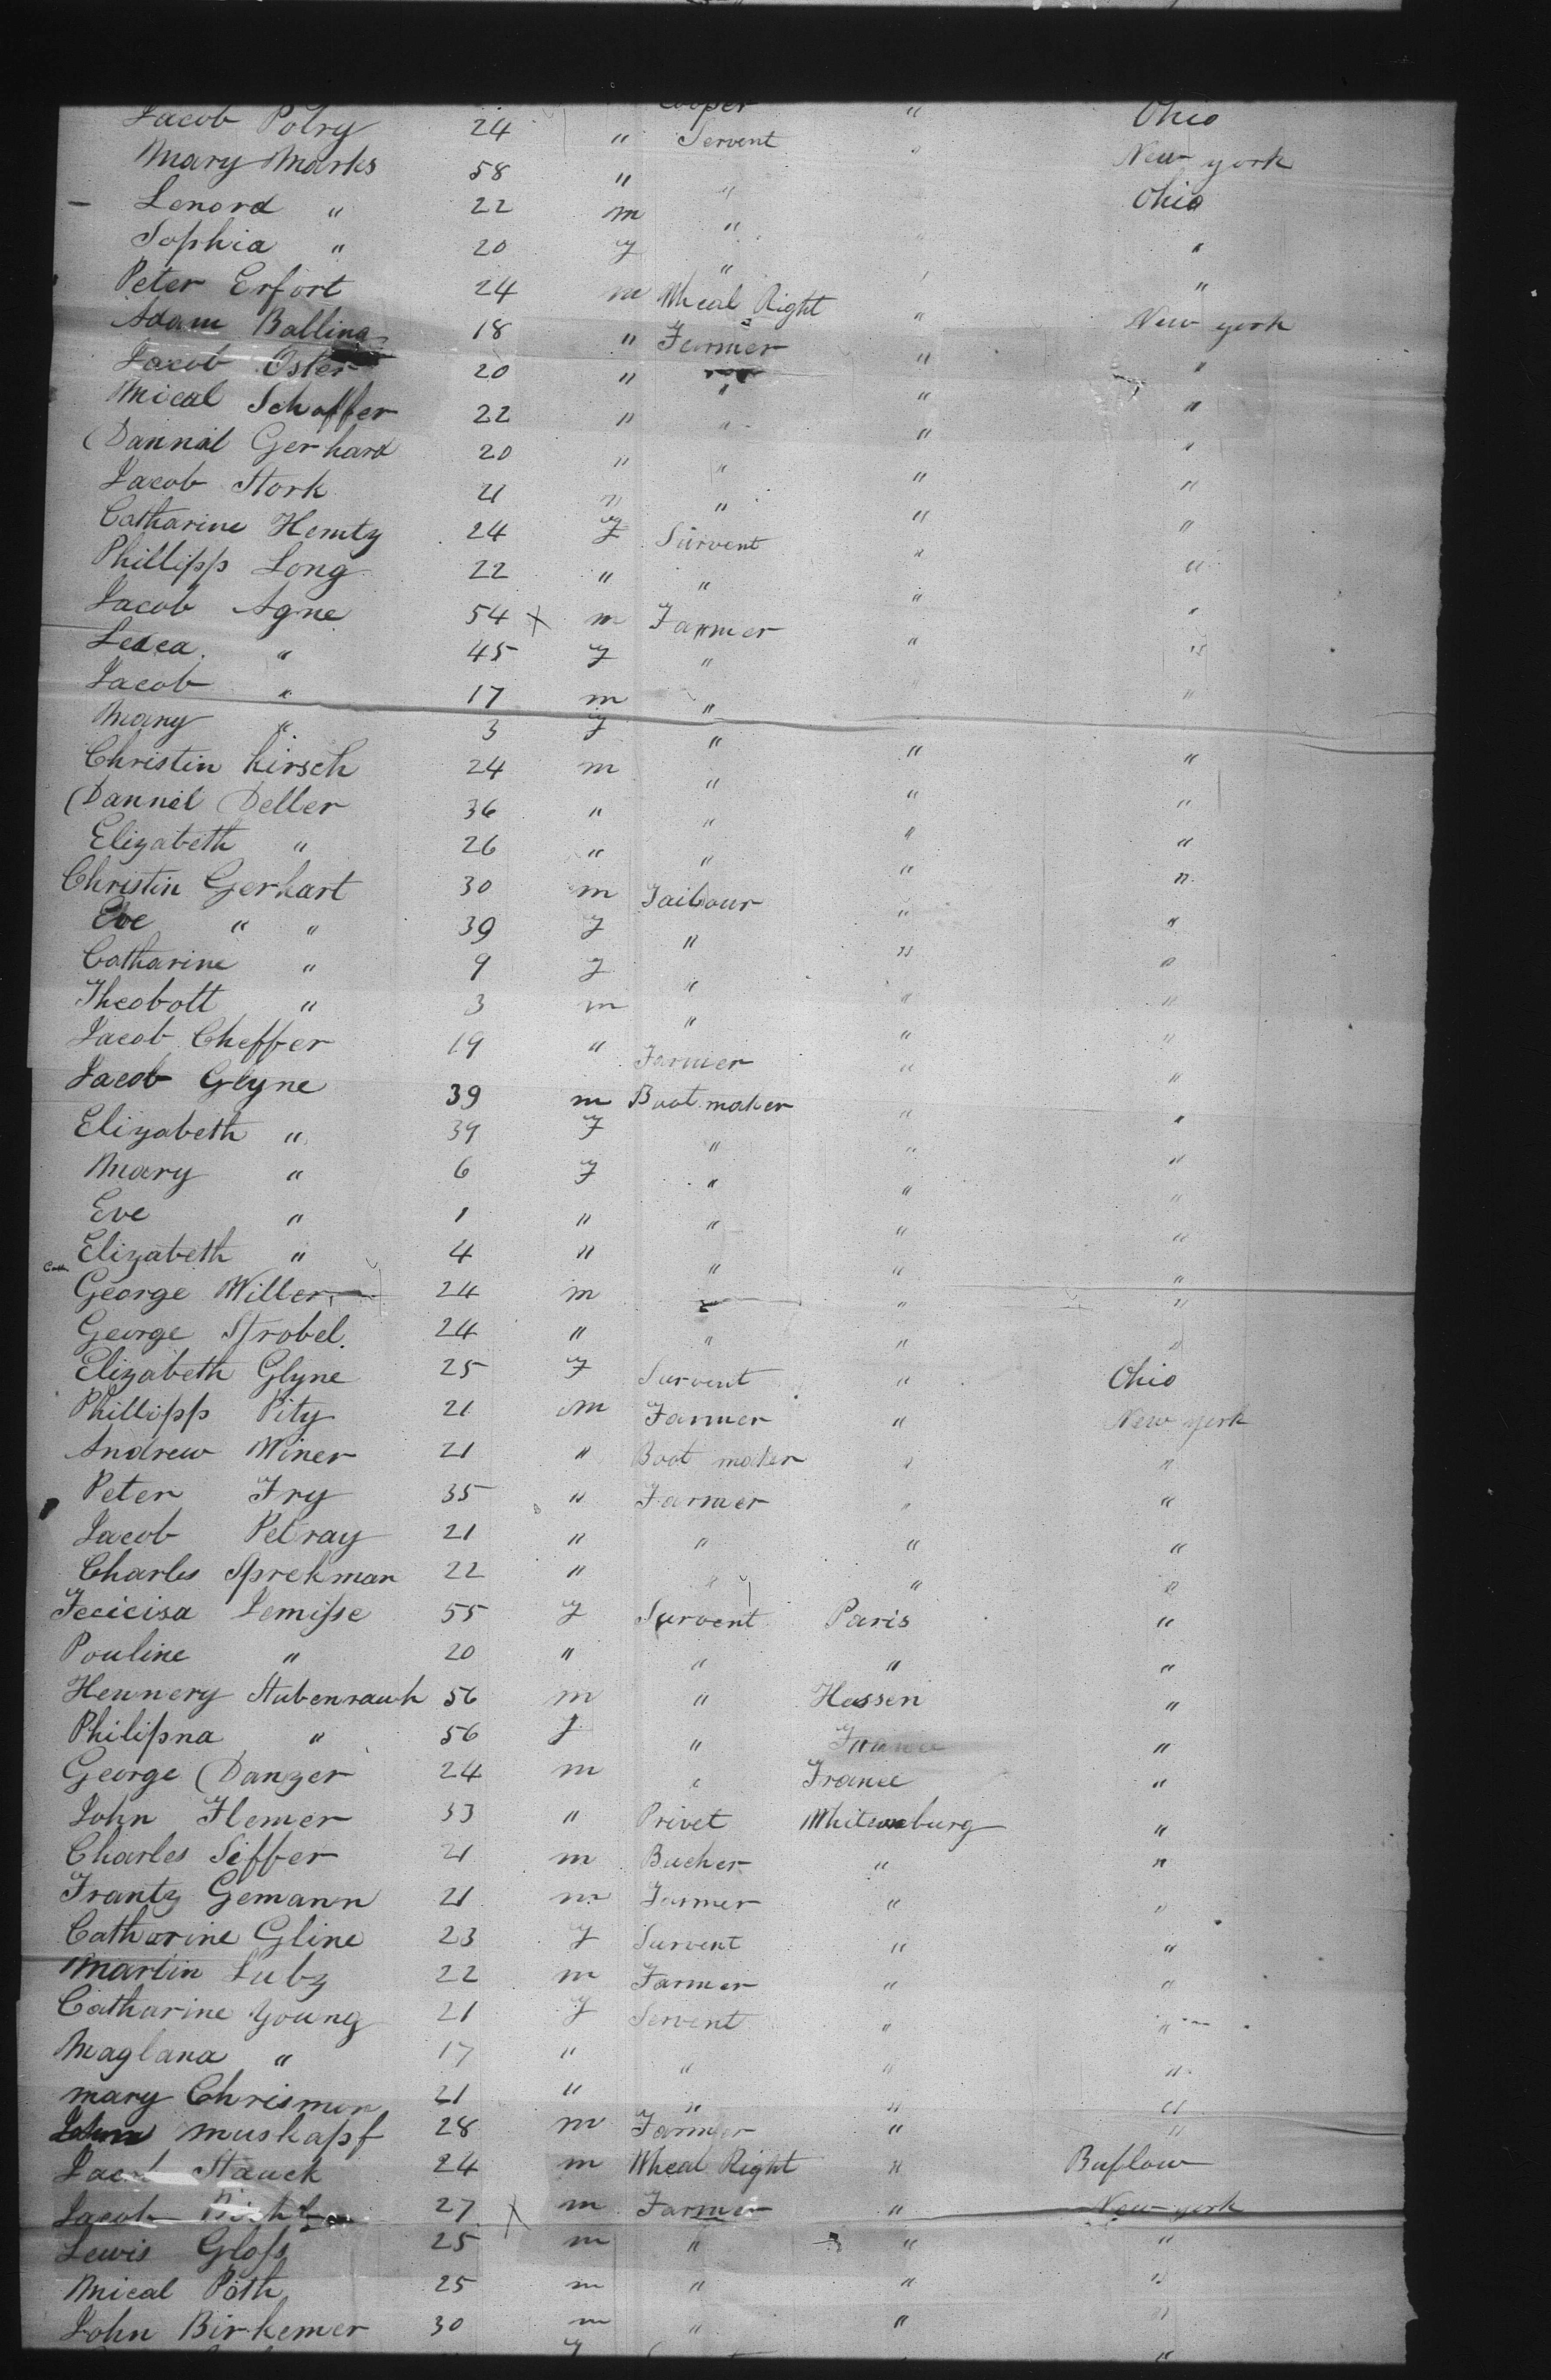 Cooper " Ohio
Jacob Polry 24 " Servent " New york
Mary Marks 58 " " Ohio
Lenord " 22 m " "
Sophia " 20 f " "
Peter Erfort 24 m Wheal Right " New york
Adam Ballina 18 " Farmer " "
Jacob Oster 20 " " " "
Mical Schaffer 22 " " " "
Dannal Gerhard 20 " " " "
Jacob Stork 21 " " " "
Catharine Hemtz 24 f Survent " "
Phillipp Long 22 " " " "
Jacob Agne 54 x m Farmer " "
Ledea " 45 f " "
Jacob " 17 m "
Mary " 3 f " " "
Christin Kirsch 24 m " " "
Dannel Deller 36 " " " "
Elizabeth " 26 " " " "
Christin Gerhart 30 m Tailour " "
Eve " " 39 f " " "
Catharine " 9 f " " "
Theobott " 3 m " " "
Jacob Cheffer 19 " Farmer " "
Jacob Glyne 39 m Boot maker " "
Elizabeth " 39 f " " "
Mary " 6 f " " "
Eve " 1 " " " "
Elizabeth " 4 " " " "
George Willer 24 m " "
George Strobel 24 " " " "
Elizabeth Glyne 25 f Survent " Ohio
Phillipp Pity 21 m Farmer " New york
Andrew Winer 21 " Boot maker " "
Peter Fry 35 " Farmer " "
Jacob Petray 21 " " " "
Charles Sprekman 22 " " " "
Fecicisa Lemisse 55 f Survent Paris "
Pouline " 20 " " " "
Hennery Stubenrauh 56 m " Hessen "
Philipna " 56 f " France "
George Danzer 24 m " France "
John Flemer 33 " Privet Whitewburg "
Charles Siffer 21 m Bucher " "
Frantz Gemann 21 m Farmer " "
Catharine Gline 23 f Survent " "
Martin Lutz 22 m Farmer " "
Catharine Young 21 f Servent " "
Maglana " 17 " " " "
mary Chrismon 21 " " " "
muskapf 28 m Farmer " "
Jacob Stauck 24 m Wheal Right " Buflow
Jacob 27 x m Farmer " New york
Lewis Gloss 25 m " " "
Mical Poth 25 m " " "
John Birkemer 30 m " " "
f "